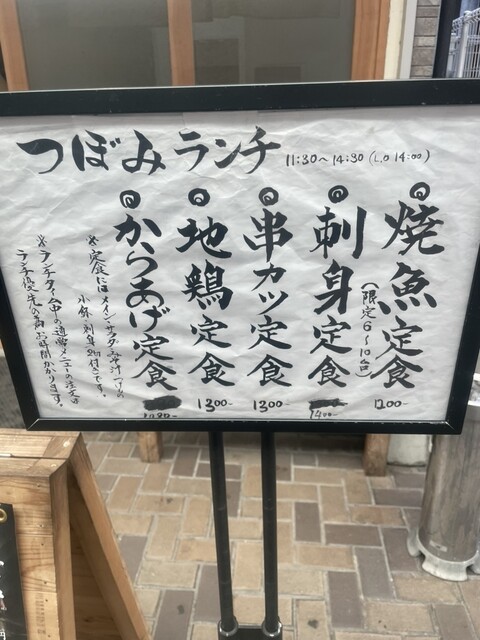 つぼみランチ 11:30〜14:30 (L.O 14:00)
◎焼魚定食 1200-
(限定6〜10食)
◎刺身定食 1400-
◎串カツ定食 1300-
◎地鶏定食 1300-
◎からあげ定食
※定食にはメイン・サラダ・みそ汁・ごはん
小鉢・刺身2切付きです。
※ランチタイム中の通常メニューの注文は
ランチ優先の為お時間かかります。